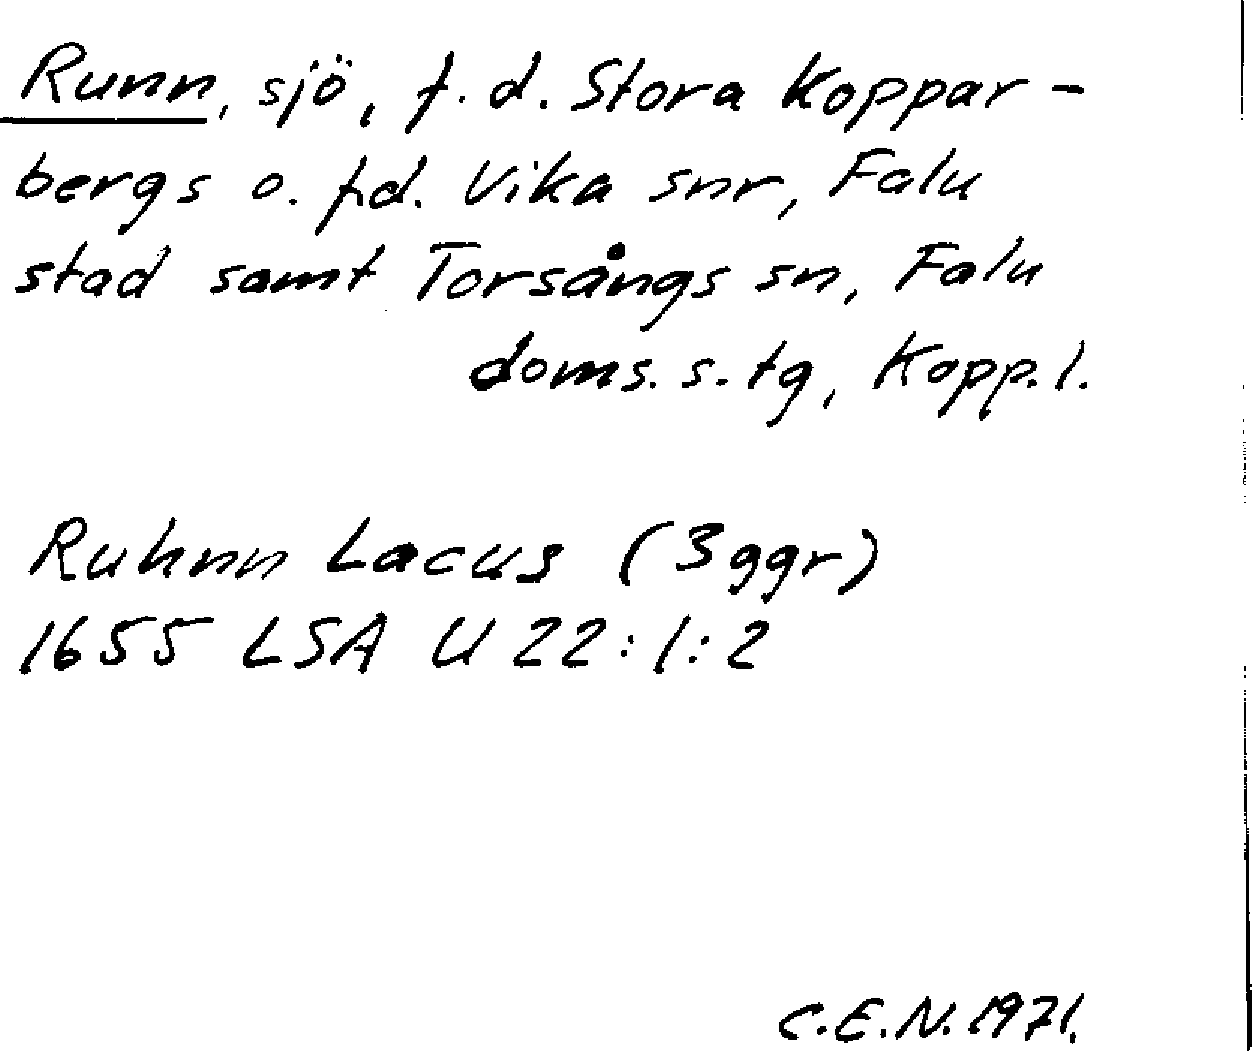 Runn, sjö, f.d. Stora Koppar-
bergs o. f.d. Vika snr, Falu
stad samt Torsångs sn, Falu
doms. s. tg, Kopp. l.
Ruhnn Lacus (3 ggr)
1655 LSA U 22:1:2
C.E.N. 1971.